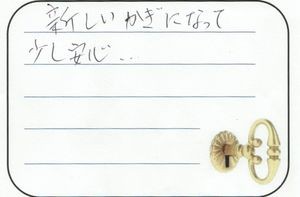 新しいかぎになって
少し安心..